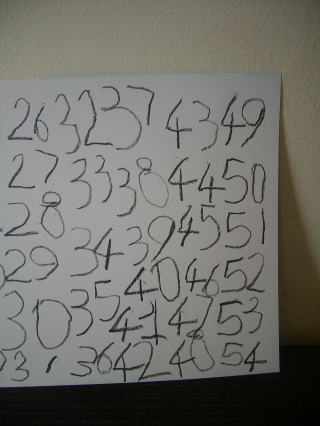 26 32 37 43 49
27 33 38 44 50
28 34 39 45 51
29 35 40 46 52
30 36 41 47 53
31 42 48 54